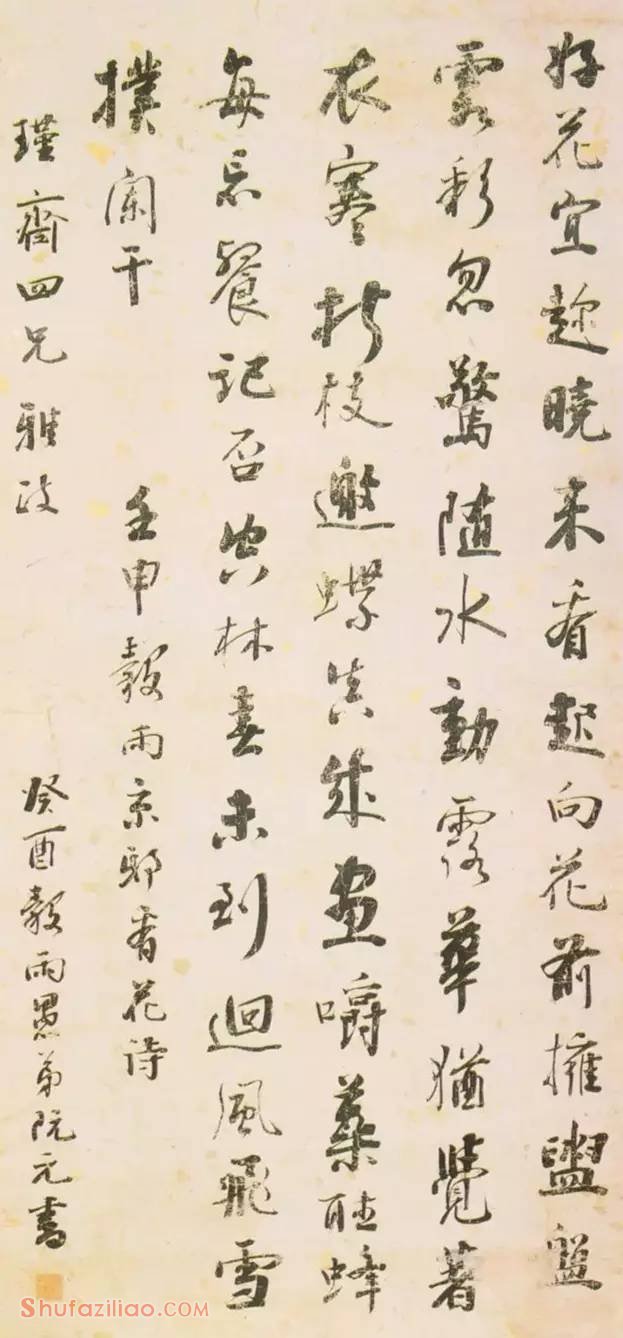 好花宜趂曉来看起向花前擁盥盤
雲彩忽驚隨水動露華猶覺著
衣寒折枝邀蝶真成畫嚼蘂聽蜂
每忘餐記否空林春未到迴風飛雪
撲闌干 壬申穀雨京邸看花詩
瑾齋四兄雅政 癸酉穀雨愚弟阮元書
Shufaziliao.com